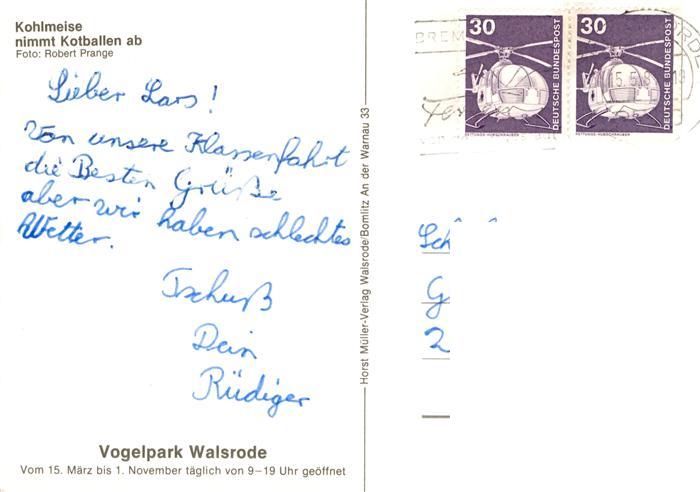 Kohlmeise
nimmt Kotballen ab
Foto: Robert Prange
Lieber Lars!
Von unsere Klassenfahrt
die Besten Grüße
aber wir haben schlechtes
Wetter.
Tschuß
Dein
Rüdiger
Vogelpark Walsrode
Vom 15. März bis 1. November täglich von 9–19 Uhr geöffnet
Horst Müller-Verlag Walsrode/Bomlitz An der Warnau 33
30
DEUTSCHE BUNDESPOST
RETTUNGS-HUBSCHRAUBER
30
DEUTSCHE BUNDESPOST
RETTUNGS-HUBSCHRAUBER
Sch
G
2